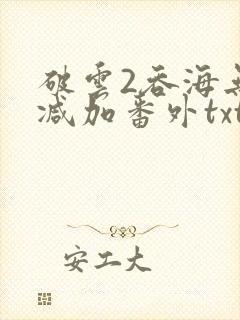 破雲2吞海无
减加番外txt
安工大